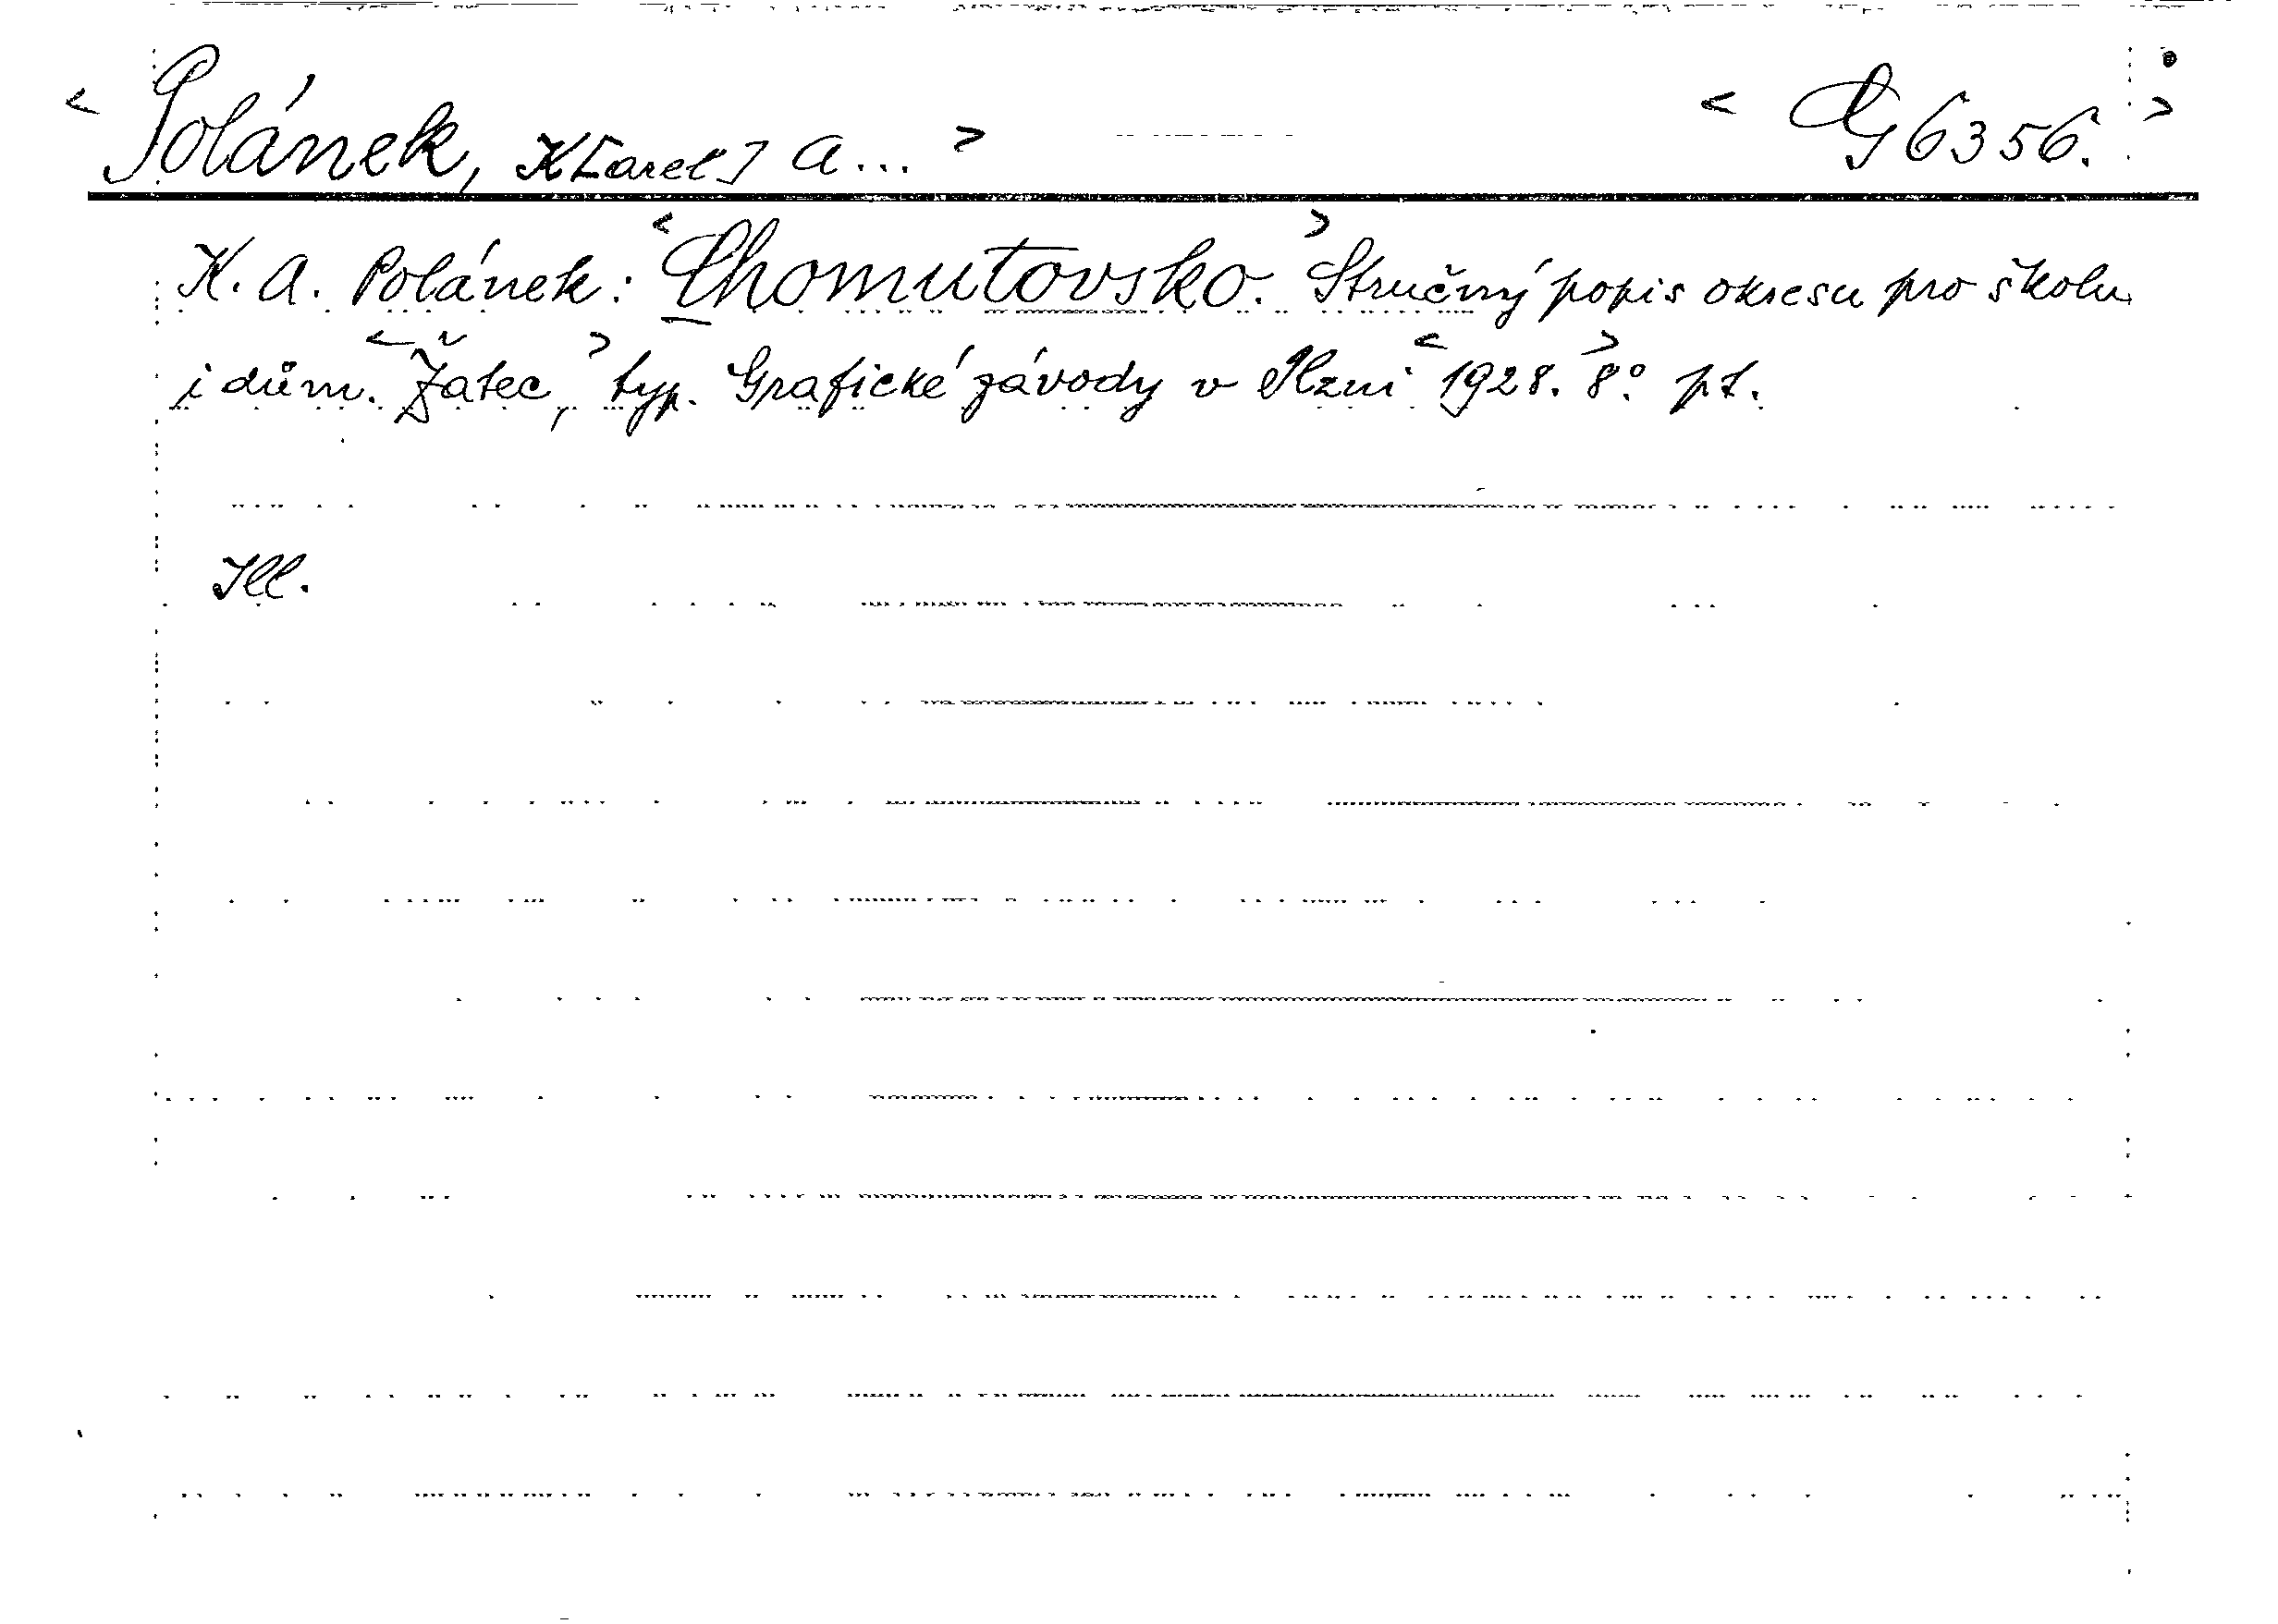 < Polánek, K[arel] A... > < G 6356. >
K. A. Polánek: <Chomutovsko.> Stručný popis okresu pro školu
i dům. <Žatec,> typ. Grafické závody v Plzni <1928.> 8° pt.
Ill.